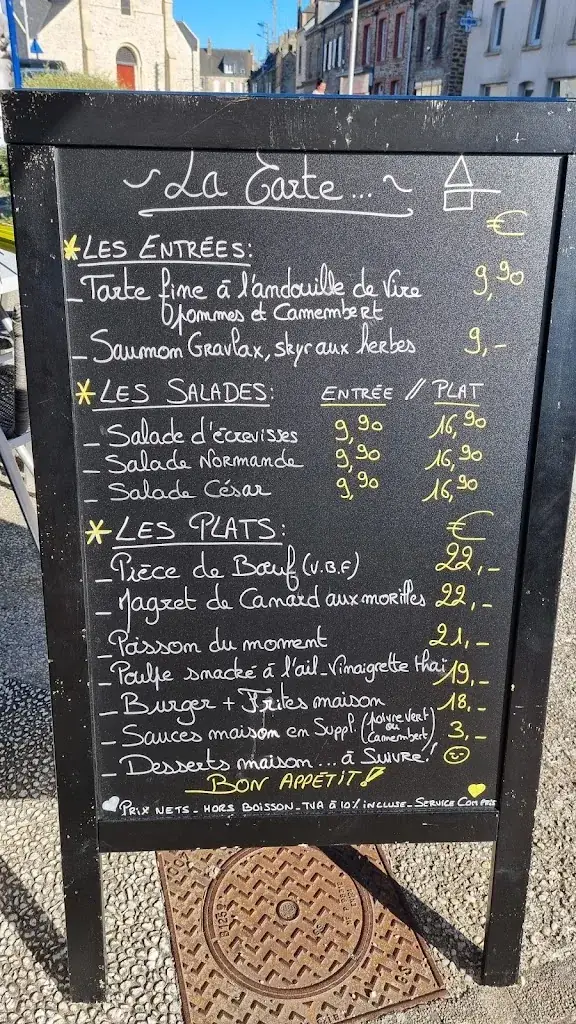 La Carte...
€
*LES ENTRÉES:
_Tarte fine à l'andouille de Vire 9,90
pommes et Camembert
_Saumon Gravlax, skyr aux herbes 9,-
*LES SALADES: ENTRÉE // PLAT
_Salade d'écrevisses 9,90 16,90
_Salade Normande 9,90 16,90
_Salade César 9,90 16,90
*LES PLATS: €
_Pièce de Bœuf (V.B.F) 22,-
_Magret de Canard aux morilles 22,-
_Poisson du moment 21,-
_Poulpe snacké à l'ail_Vinaigrette thaï 19,-
_Burger + Frites maison 18,-
_Sauces maison en Suppl (poivre vert ou Camembert) 3,-
_Desserts maison ... à Suivre!
BON APPÉTIT!
PRIX NETS_HORS BOISSON_TVA à 10% INCLUSE_SERVICE COMPRIS